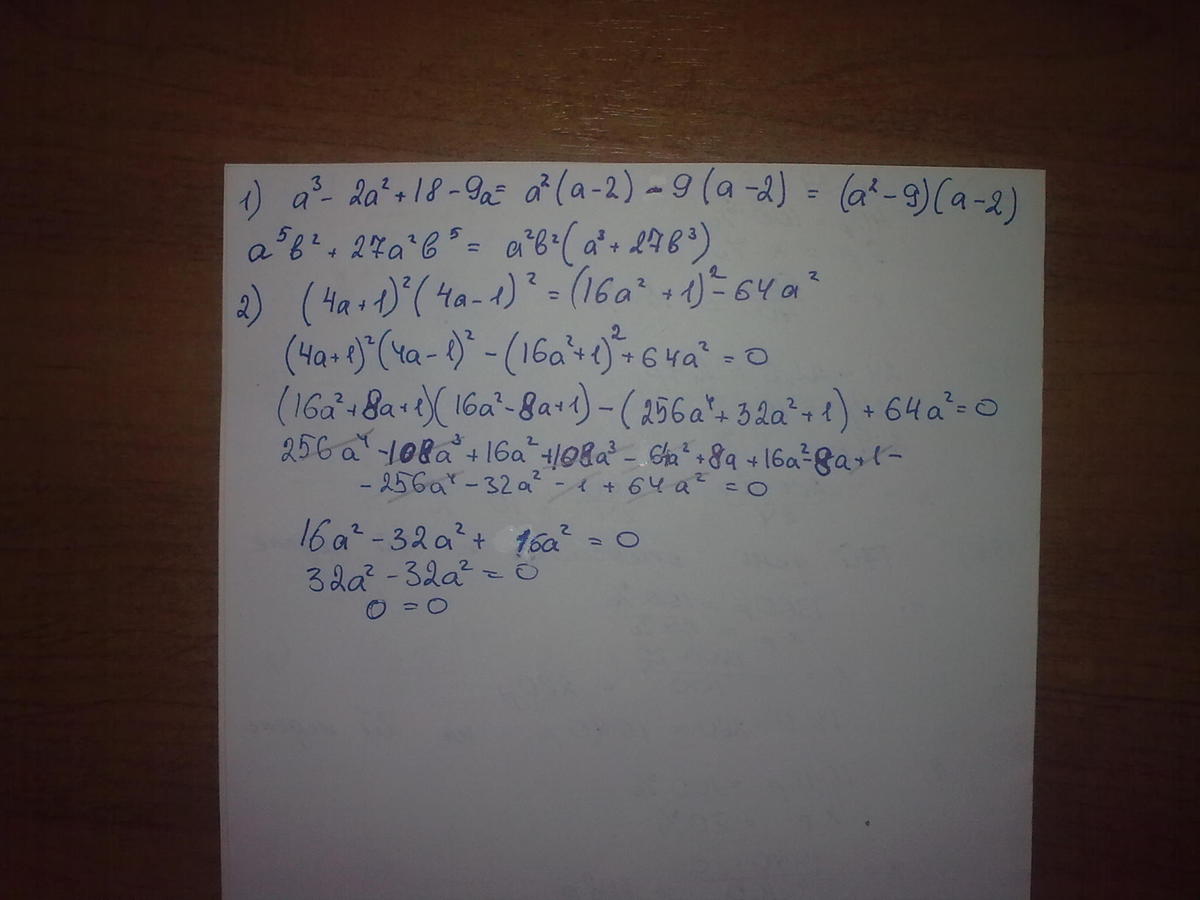 1) a³ - 2a² + 18 - 9a = a²(a-2) - 9(a-2) = (a²-9)(a-2)
a⁵b² + 27a²b⁵ = a²b²(a³ + 27b³)
2) (4a+1)²(4a-1)² = (16a²+1)² - 64a²
(4a+1)²(4a-1)² - (16a²+1)² + 64a² = 0
(16a²+8a+1)(16a²-8a+1) - (256a⁴+32a²+1) + 64a² = 0
256a⁴ - 108a³ + 16a² + 108a³ - 64a² + 8a + 16a² - 8a + 1 -
- 256a⁴ - 32a² - 1 + 64a² = 0
16a² - 32a² + 16a² = 0
32a² - 32a² = 0
0 = 0